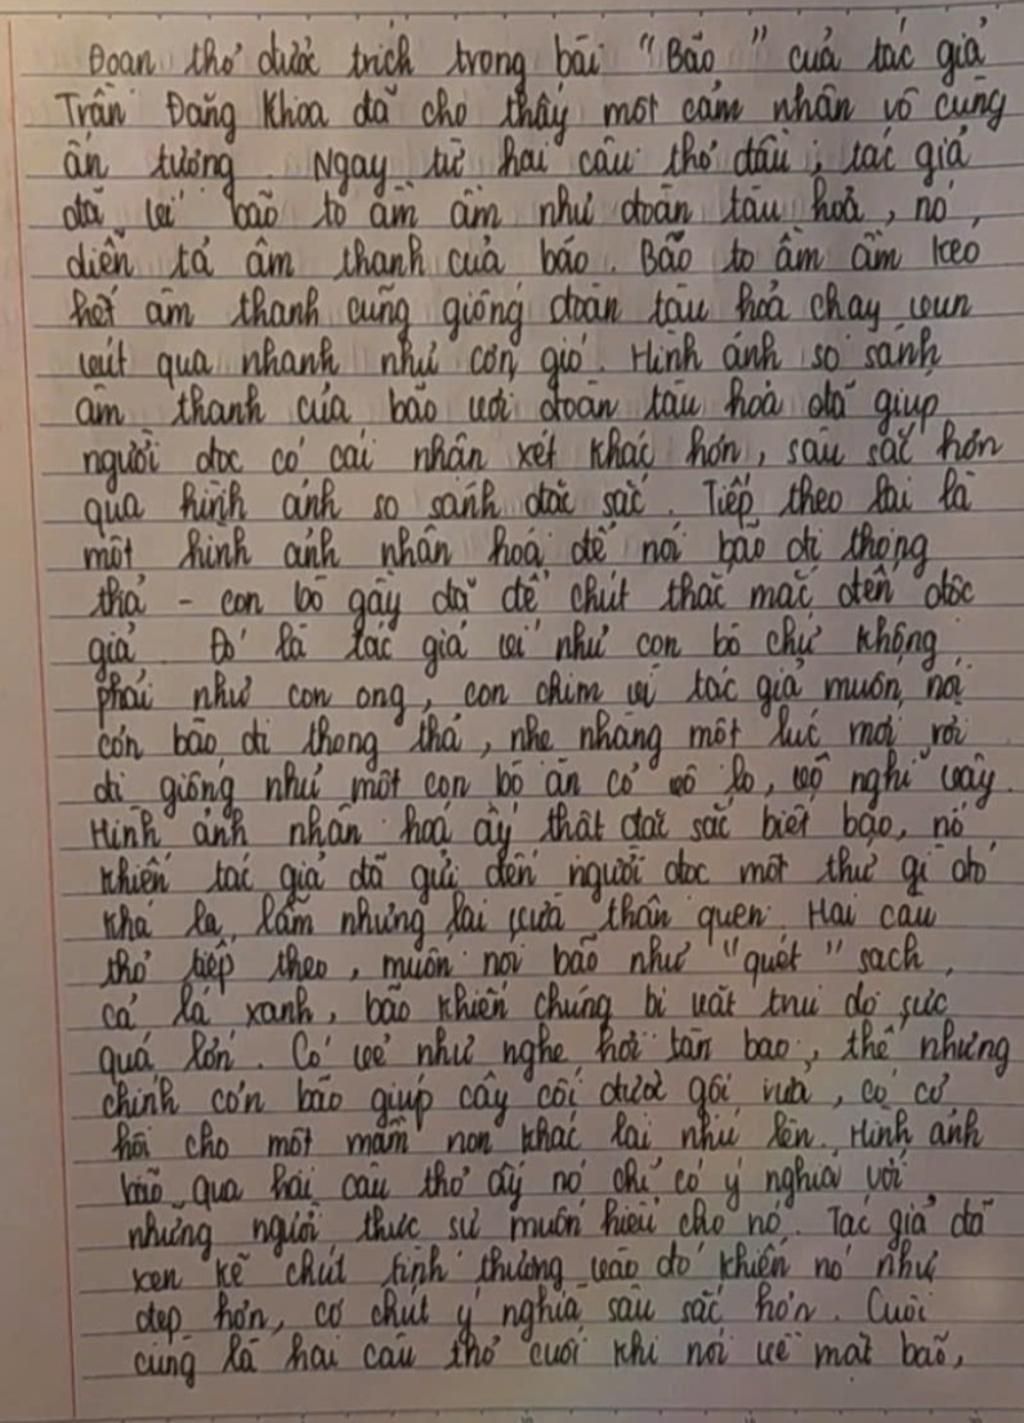 Đoạn thơ được trích trong bài "Bão" của tác giả
Trần Đăng Khoa đã cho thấy một cảm nhận vô cùng
ấn tượng. Ngay từ hai câu thơ đầu, tác giả
đã ví bão to ầm ầm như đoàn tàu hoả, nó
diễn tả âm thanh của bão. Bão to ầm ầm kéo
hết âm thanh cũng giống đoàn tàu hoả chạy vun
vút qua nhanh như cơn gió. Hình ảnh so sánh
âm thanh của bão với đoàn tàu hoả đã giúp
người đọc có cái nhận xét khác hơn, sâu sắc hơn
qua hình ảnh so sánh đặc sắc. Tiếp theo lại là
một hình ảnh nhân hoá để nói bão đi thong
thả - con bò gầy đã để chút thắc mắc đến độc
giả. Đó là tác giả ví như con bò chứ không
phải như con ong, con chim vì tác giả muốn nói
cơn bão đi thong thả, nhẹ nhàng một lúc mới rời
đi giống như một con bò ăn cỏ vô lo, vô nghĩ vậy.
Hình ảnh nhân hoá ấy thật đặc sắc biết bao, nó
khiến tác giả đã gửi đến người đọc một thứ gì đó
khá lạ lẫm nhưng lại vừa thân quen. Hai câu
thơ tiếp theo, muốn nói bão như "quét" sạch
cả lá xanh, bão khiến chúng bị vặt trụi do sức
quá lớn. Có vẻ như nghe hơi tàn bạo, thế nhưng
chính cơn bão giúp cây cối được gội rửa, có cơ
hội cho một mầm non khác lại nhú lên. Hình ảnh
bão qua hai câu thơ ấy nó chỉ có ý nghĩa với
những người thực sự muốn hiểu cho nó. Tác giả đã
xen kẽ chút tình thương vào đó khiến nó như
đẹp hơn, có chút ý nghĩa sâu sắc hơn. Cuối
cùng là hai câu thơ cuối khi nói về mặt bão,